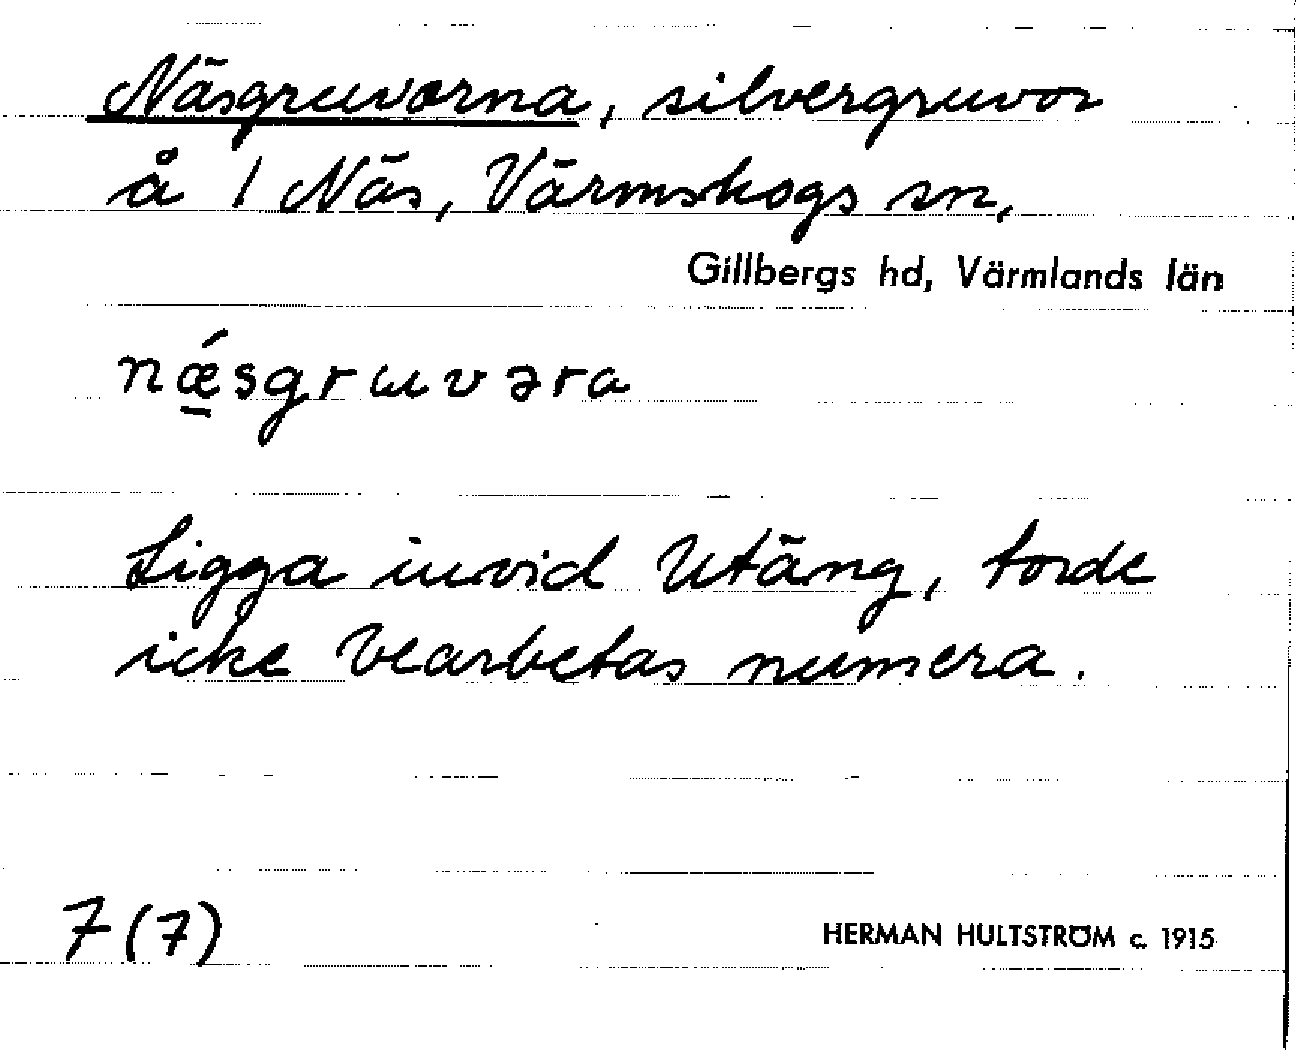 Näsgruvorna, silvergruvor
å 1 Näs, Värmskogs sn,
Gillbergs hd, Värmlands län
nǽ̱sgrɯvəra
Ligga invid Utäng, torde
icke bearbetas numera.
7 (7)
HERMAN HULTSTRÖM c. 1915